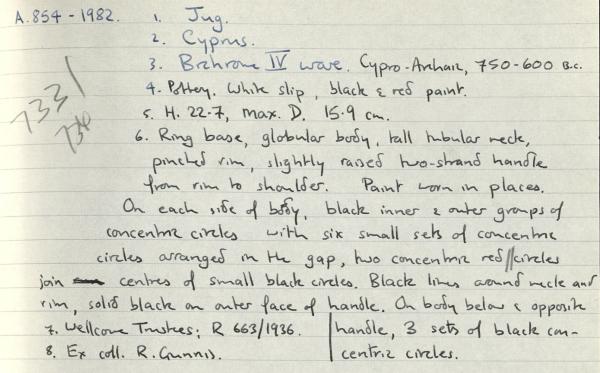 A.854-1982. 1. Jug.
2. Cyprus.
3. Bichrome IV ware. Cypro-Archaic, 750-600 B.C.
733/
730
4. Pottery. White slip, black & red paint.
5. H. 22.7, max. D. 15.9 cm.
6. Ring base, globular body, tall tubular neck,
pinched rim, slightly raised two-strand handle
from rim to shoulder. Paint worn in places.
On each side of body, black inner & outer groups of
concentric circles with six small sets of concentric
circles arranged in the gap, two concentric red circles
join centres of small black circles. Black lines around neck and
rim, solid black on outer face of handle. On body below & opposite
handle, 3 sets of black con-
centric circles.
7. Wellcome Trustees; R 663/1936.
8. Ex coll. R. Gunnis.